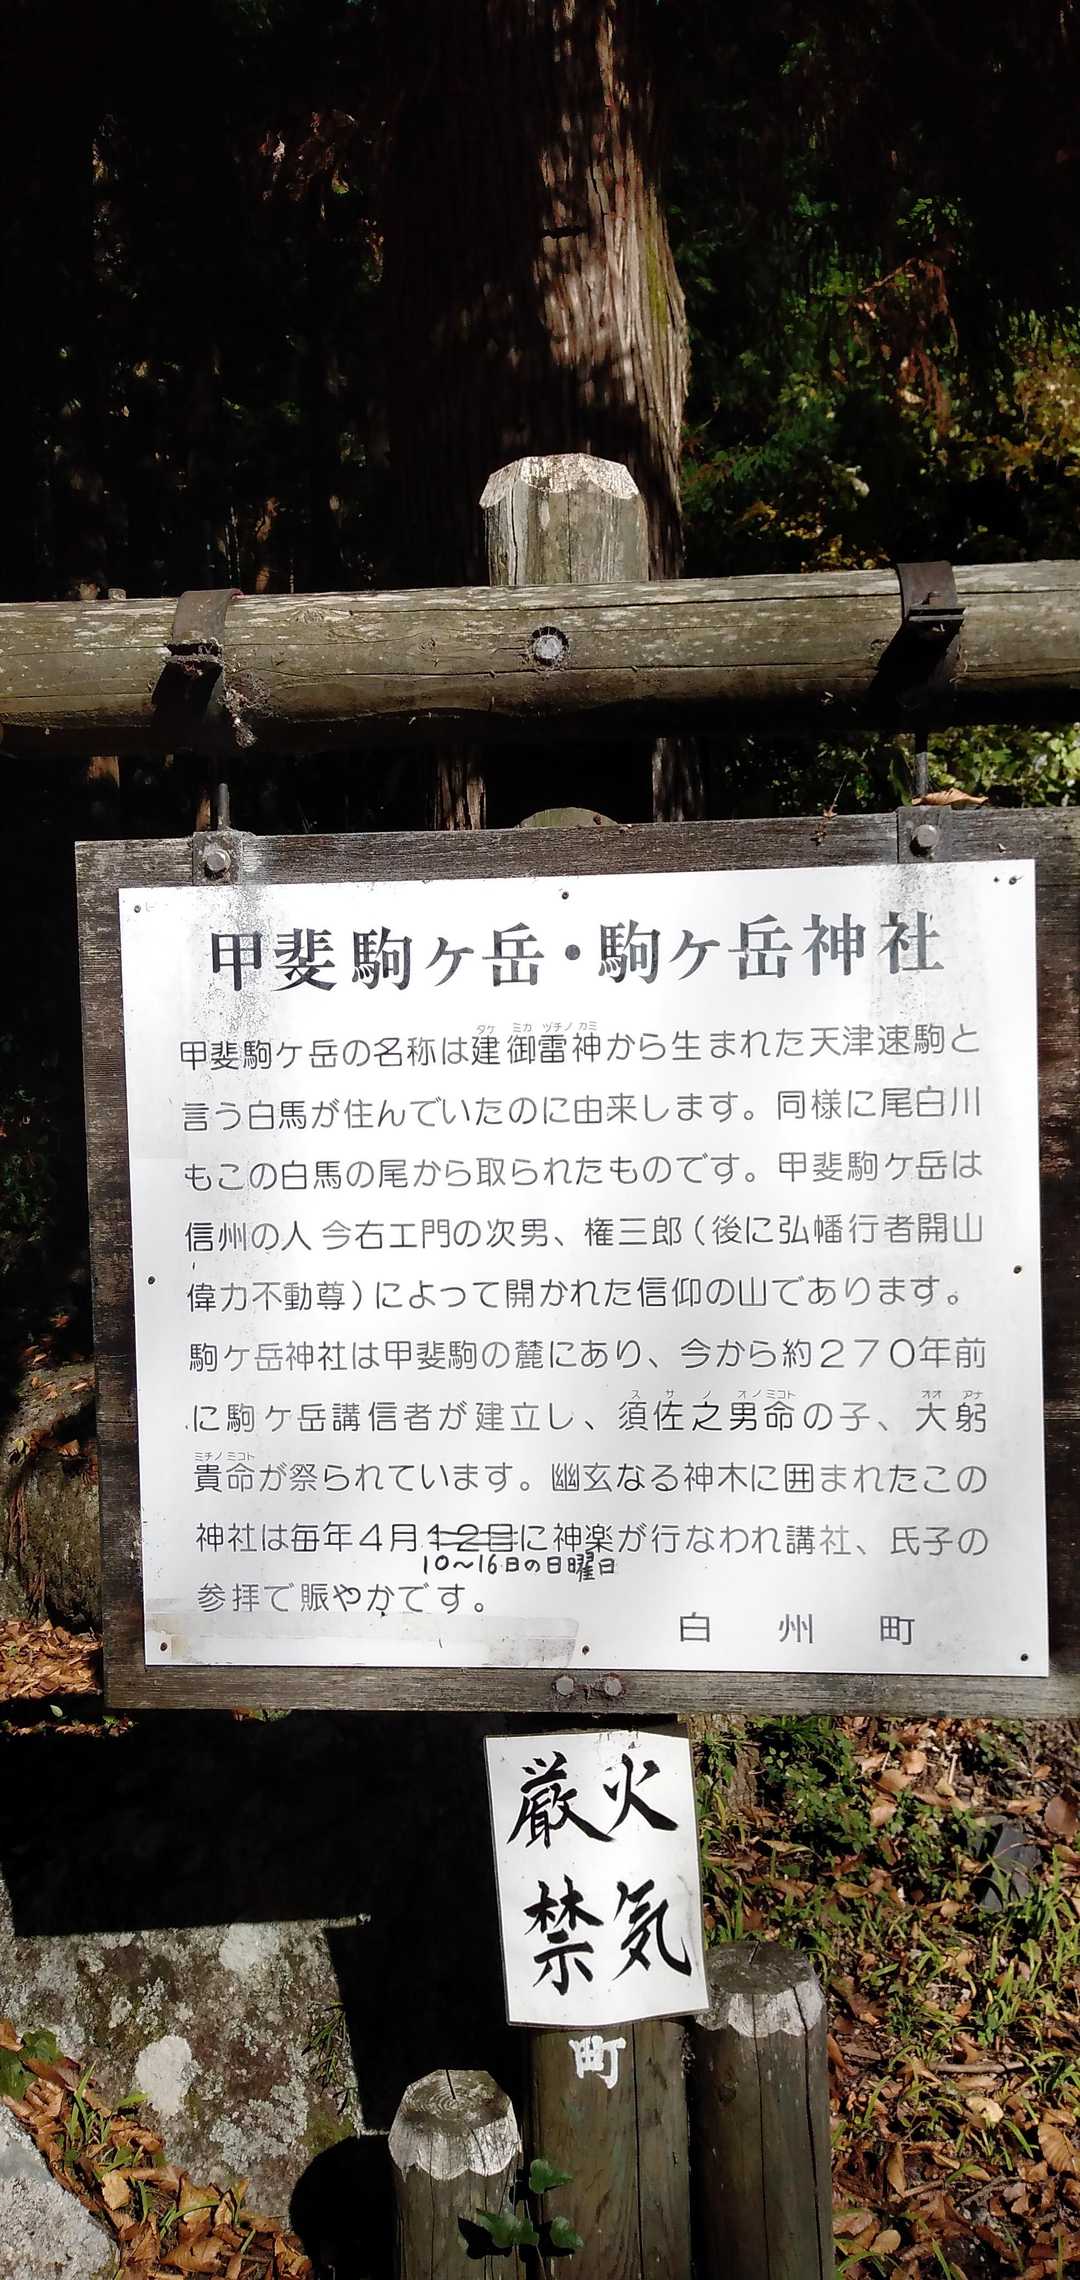 甲斐駒ヶ岳・駒ヶ岳神社
甲斐駒ケ岳の名称は建御雷神から生まれた天津速駒と
言う白馬が住んでいたのに由来します。同様に尾白川
もこの白馬の尾から取られたものです。甲斐駒ケ岳は
信州の人 今右エ門の次男、権三郎（後に弘幡行者開山
偉力不動尊）によって開かれた信仰の山であります。
駒ケ岳神社は甲斐駒の麓にあり、今から約２７０年前
に駒ケ岳講信者が建立し、須佐之男命の子、大躬
貴命が祭られています。幽玄なる神木に囲まれたこの
神社は毎年４月１２日に神楽が行なわれ講社、氏子の
10〜16日の日曜日
参拝で賑やかです。
白州町
火気
厳禁
町